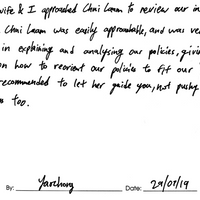 wife & I approached Chni Laam to review our in
Chni Laam was easily approachable, and was ve
in explaining and analysing our policies, givi
on how to reorient our policies to fit our
recommended to let her guide you, not pushy
too.
By: Date: 29/07/19